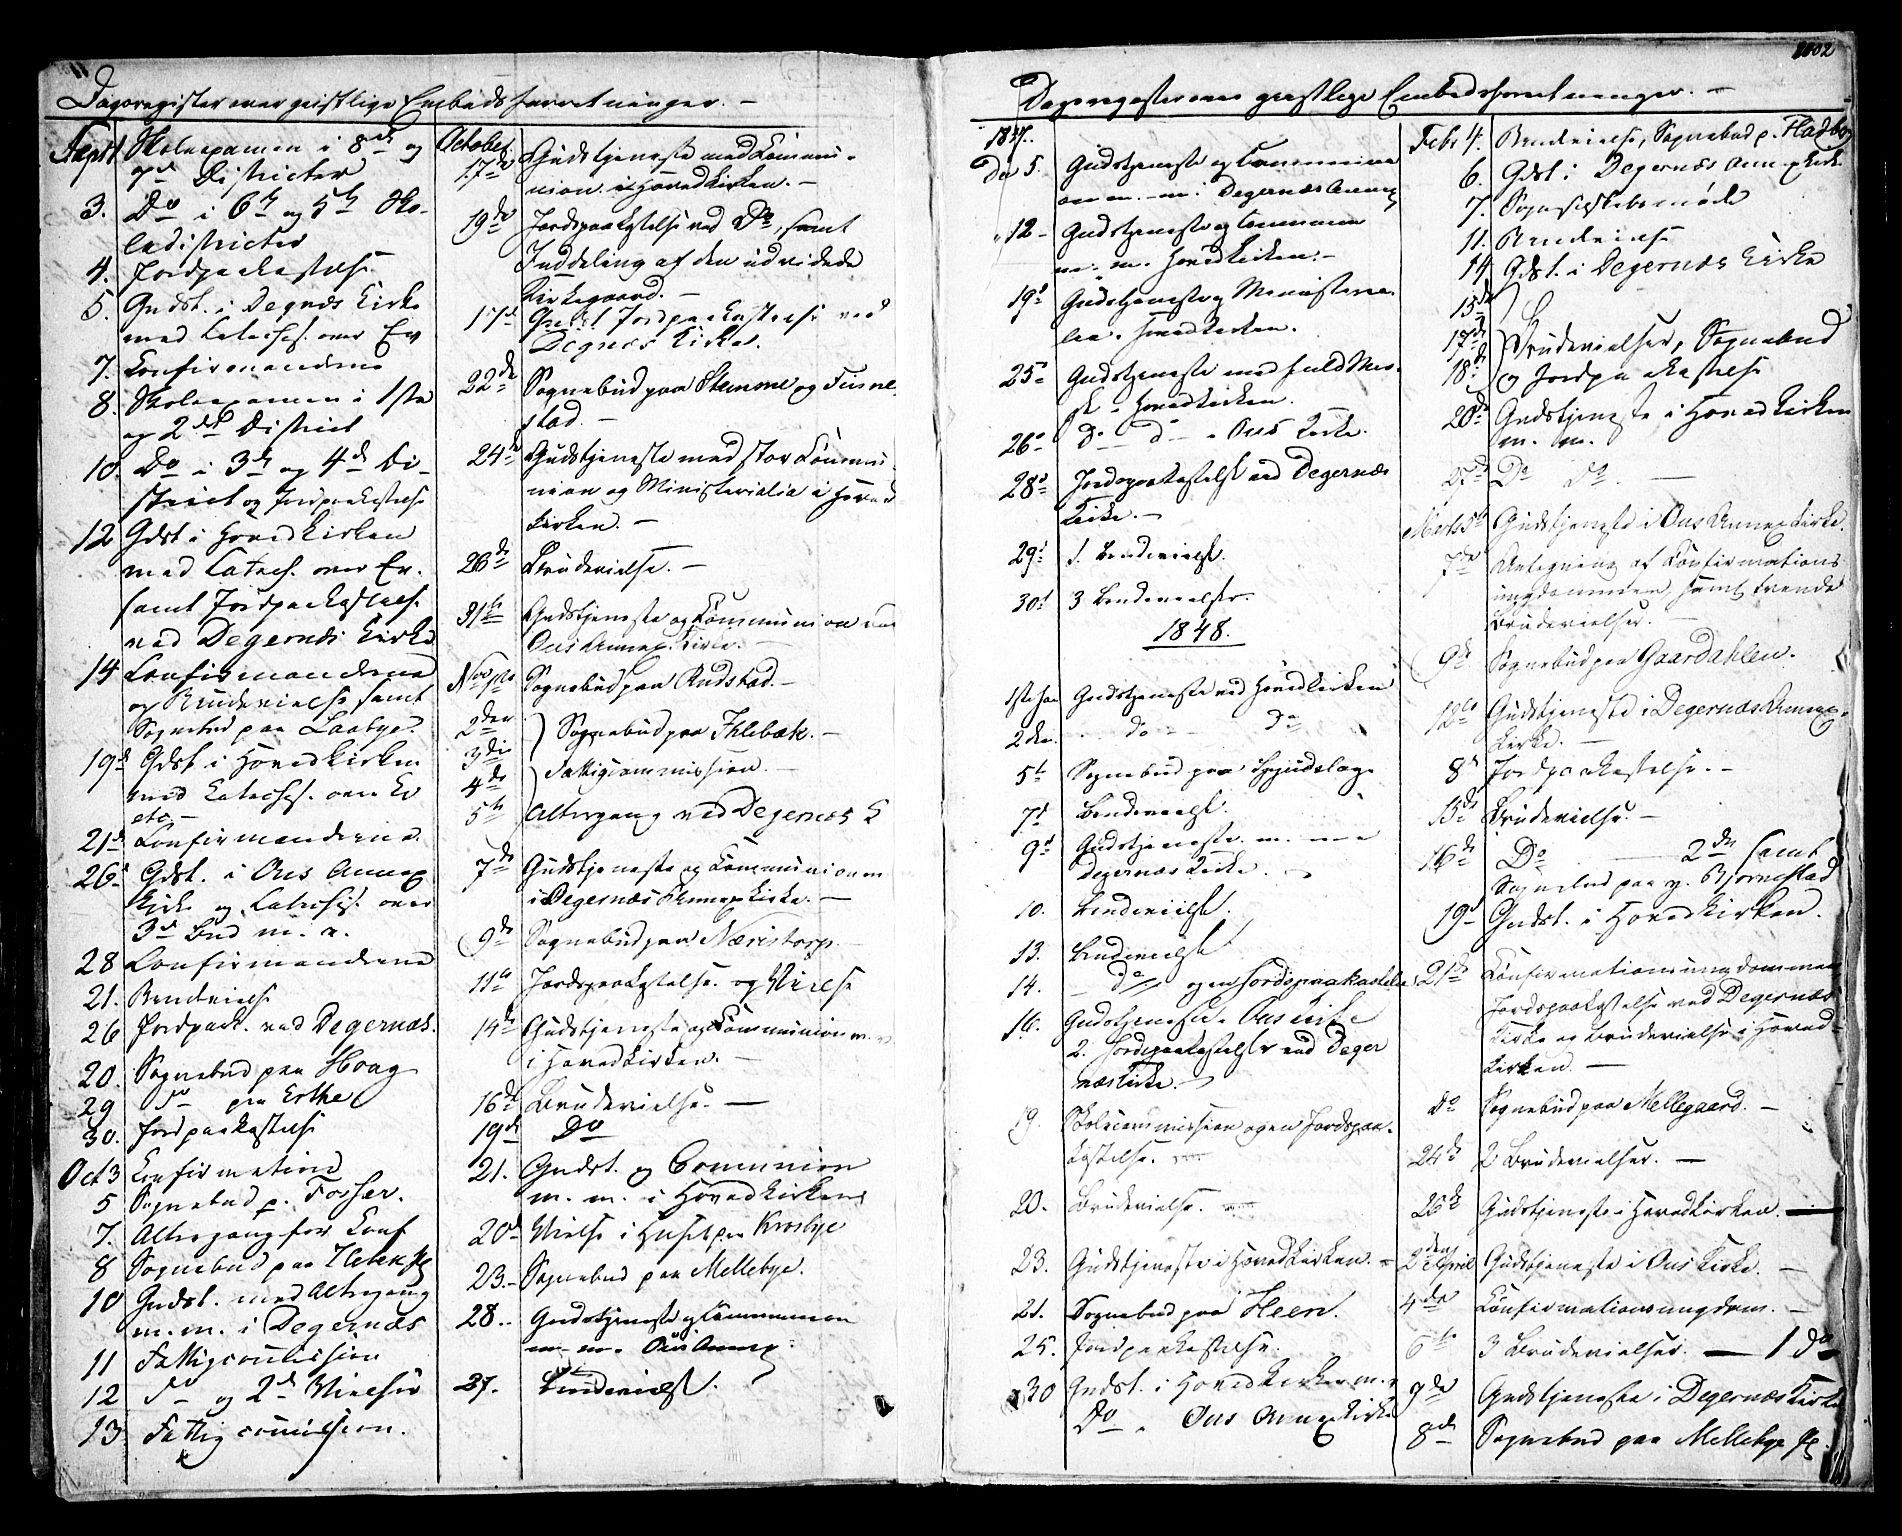 Dagsregister over geistlige Embedsforretninger. –
Sept 1 Skoleexamen i 8de og
7de Districter
3. Do i 6te og 5te Sko-
ledistricter
4. Jordpaakastelse
5. Gudst. i Degnæs Kirke
med Catechs. over Ev
7. Confirmanderne
8. Skoleexamen i 1ste
og 2det District
10. Do i 3de og 4de Di-
strict og Jordpaakastelse
12 Gdst i Hovedkirken
med Catech. over Ev.
samt Jordpaakastelse
ved Degernæs Kirke
14 Confirmanderne
og Brudevielse samt
Sognebud paa
19d Gdst i Hovedkirken
med Cateches. over Ev
etc. –
21d Confirmanderne
26d Gdst. i Ous Annex
Kirke og Cateches. over
3d Bud m. v.
28 Confirmanderne
21. Brudevielse
26 Jordpaak. ved Degernæs.
20. Sognebud paa Houg
29 Do paa Erthe
30. Jordpaakastelse
Oct 3 Confirmation
5 Sognebud p. Fosser.
7. Altergang for Conf
8 Sognebud paa
10 Gudst. med Altergang
m. m. i Degernæs
11 Fattigcommission
12 Do og 2d Vielser
13 Fattigcommission.
October
17de Gudstjeneste med Commu-
nion i Hovedkirken. –
19de Jordspaakastelse ved Do, samt
Inddeling af den udvidede
Kirkegaard. –
17d Jordpaakastelse ved
Degnæs Kirke.
22de Sognebud paa Stemme og
stad. –
24de Gudstjeneste med stor Commu-
nion og Ministerialia i Hoved
kirken. –
26de Brudevielse. –
31te Gudstjeneste og Communion
Ous Annex. Kirke. –
Nov 1te Sognebud paa Rudstad. –
2den
3die Sognebud paa Ihlebæk. –
4de Fattigcommission. –
5te Altergang ved Degernæs K
7de Gudstjeneste og Communion m
i Degernæs Annexkirke. –
9de Sognebud paa Næristorp. –
11te Jordspaakastelse og Vielse
14de Gudstjeneste og Communion m. v.
i Hovedkirken. –
16de Brudevielse. –
19de Do
21. Gudst. og Communion
m. m. i Hovedkirken
20d Vielse i Huset paa Krosbye
23. – Sognebud paa Mellebye.
28. – Gudstjeneste og Communion
m. m. Ous Annex
27. Brudevielse.
2002
Dagsregister over geistlige Embedsforretninger. –
1847.
Dec 5. Gudstjeneste og Communion
m. m. i Degernæs Annex
12 – Gudstjeneste og Communion
m. m. Hovedkirken. –
19d Gudstjeneste og Ministeria
lia i Hovedkirken.
25d Gudstjeneste med fuld
i Hovedkirken.
26d do do i Ous Kirke.
28d Jordspaakastelse ved Degernæs
Kirke. –
29d 1. Brudevielse.
30d 3 Brudevielser.
1848.
1ste Jan Gudstjeneste ved Hovedkirken
2den do Do
5te Sognebud paa
7d Brudevielse.
9d Gudstjeneste m. m.
Degernæs Kirke.
10. Brudevielse.
13. Brudevielse
14. – do og en Jordspaakastelse
16. Gudstjeneste i Ous Kirke
2. Jordspaakastelser ved Deger
næs Kirke. –
19. Skolecommission og en Jordspaa-
kastelse.
20. Brudevielse.
23. Gudstjeneste i Hovedkirken. –
21. Sognebud paa Heen.
25. Jordpaakastelse.
30 Gudst. i Hovedkirken m. v
Do i Ous Annexkirke
Febr 4. Brudevielse, Sognebud p. Fladbye
6. Gdst i Degernæs Annexkirke
7. Sogneselskabsmøde
11. Brudevielse
14 Gdst. i Degernæs Kirke
15de
17de Brudevielser, Sognebud
18de og Jordpaakastelse
20de Gudstjeneste i Hovedkirken
m. m.
27de Do do. –
Marts 5te Gudstjeneste i Ous Annexkirke.
7de Antegning af Confirmations
ungdommen, samt trende
Brudevielser. –
9de Sognebud paa Gaardahlen.
12te Gudstjeneste i Degernæs Annex-
Kirke. –
8d Jordpaakastelse. –
15de Brudevielse. –
16de Do – 2de samt
Sognebud paa g. Bjørnestad
19d Gudst. i Hovedkirken.
21de Confirmationsungdommen
Jordspaakastelse ved Degernæs
Kirke og Brudevielse i Hoved-
kirken. –
Do Sognebud paa Mellegaard. –
24de 2 Brudevielser. –
26de Gudstjeneste i Hovedkirken. –
2den April Gudstjeneste i Ous Kirke. –
4de Confirmationsungdom. –
6te 3 Brudevielser. – 1 do
9de Gudstjeneste i Degernæs Kirke
8de Sognebud paa Mellebye